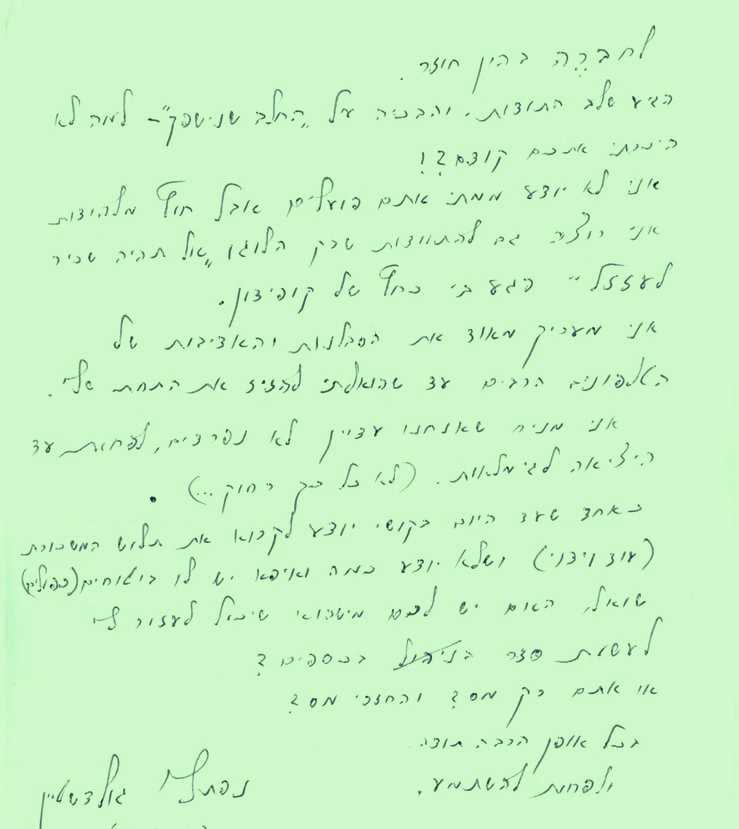 לחברה בהין חוזר.
הגיע שלב התודות, והבכיה על "החלב שנישפך" – למה לא
היכרתי אתכם קודם?!
אני לא יודע ממתי אתם פועלים אבל חוץ מלהודות
אני רוצה גם להתוודות שרק הלוגו "אל תהיה שכיר
לעזזל" הגע בי כחץ של קופידון.
אני מעריך מאוד את הסבלנות והאדיבות של
הטלפונים הרבים עד שהואלתי להזיז את התחת שלי.
אני מניח שאנחנו עדיין לא נפרדים, לפחות עד
היציאה לגימלאות. (לא כל כך רחוק...).
כאחד שעד היום בקושי יודע לקרוא את תלוש המשכורת
(עוד וידוי) ושלא יודע כמה ואיפא יש לו ביטוחים (כפולים)
שואל, האם יש לכם מישהוא שיכול לעזור לי
לעשות סדר בניהול בכספים?
או אתם רק מס? והחזרי מס?
בכל אופן הרבה תודה
ולפחות להשתמע.
נפתלי גולדשטיין